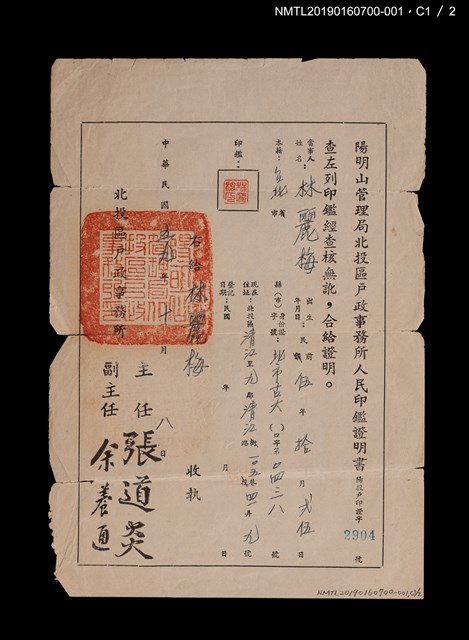 NMTL20190160700-001，C1 / 2
陽明山管理局北投區戶政事務所人民印鑑證明書 陽投戶印證字 2904 號
查左列印鑑經查核無訛，合給證明。
當事人姓名：林麗梅
出生年月日：民前國 伍年拾月弍伍日
本籍：台北 省市 縣（市）
身份證字號：北市古大（ ）口字第〇四三八號
現在住址：北投區清江里九鄰清江路
一〇五巷四一弄九號
登記日期：民國 年 月 日
印鑑：
右給 林麗梅 收執
主任 張道炎
副主任 余養通
北投區戶政事務所
中華民國五九年十月八日
NMTL20190160700-001,C1/2